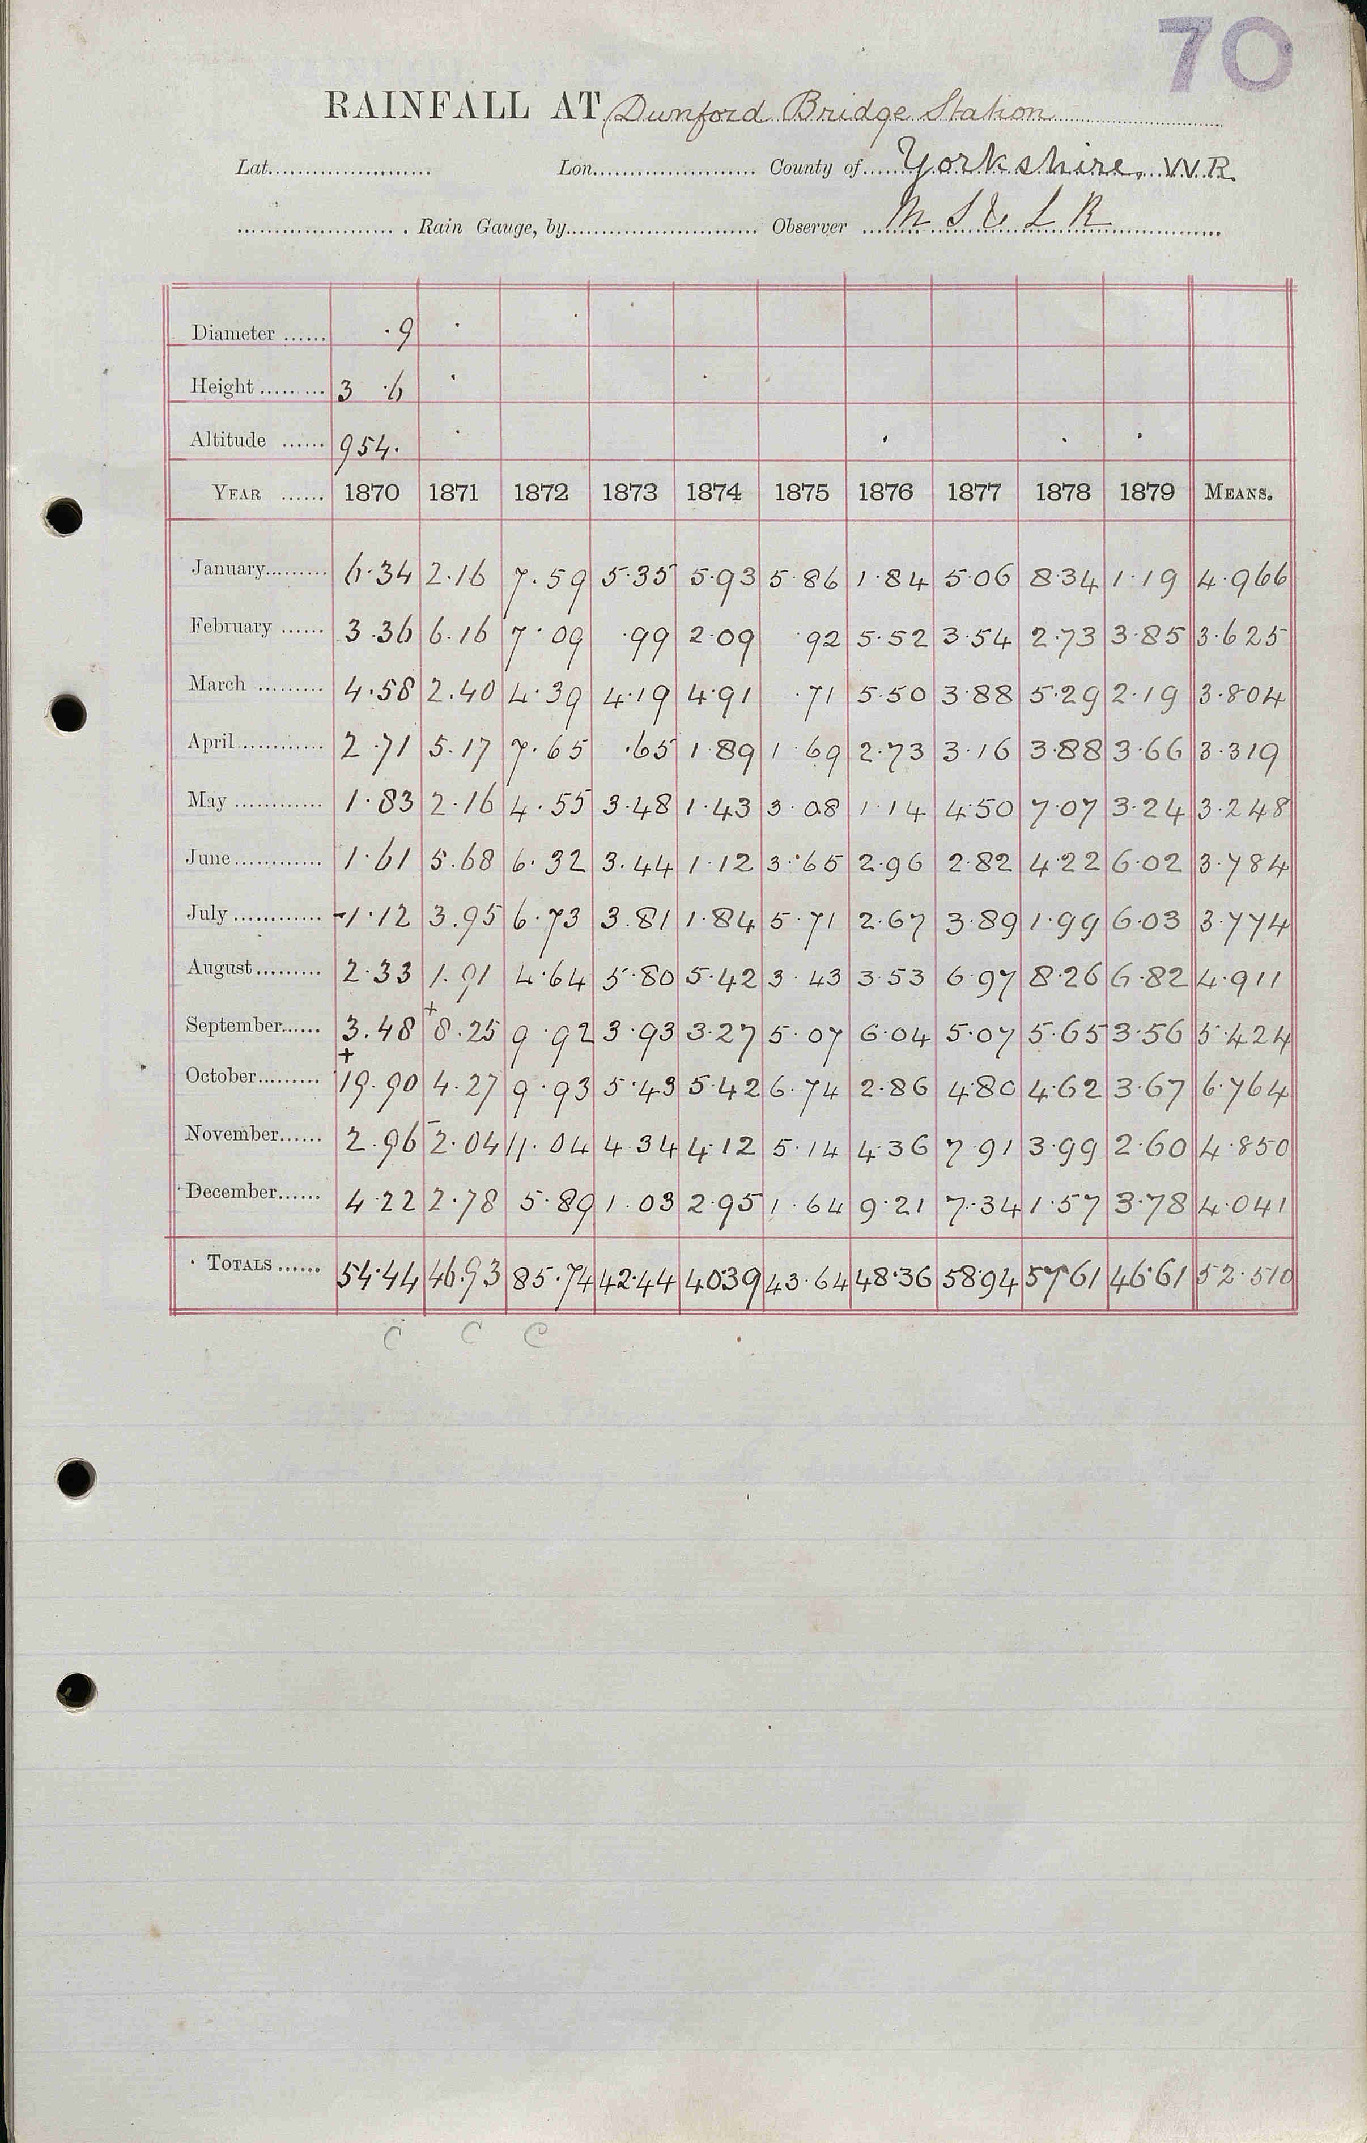 70
RAINFALL AT Dunford Bridge Station
Lat. Lon. County of Yorkshire, W.R.
Rain Gauge, by Observer M S & L R
Diameter ...... ·9
Height ......... 3 ·6
Altitude ...... 954.
YEAR ...... 1870 1871 1872 1873 1874 1875 1876 1877 1878 1879 MEANS.
January......... 6·34 2·16 7·59 5·35 5·93 5·86 1·84 5·06 8·34 1·19 4·966
February ...... 3·36 6·16 7·09 ·99 2·09 ·92 5·52 3·54 2·73 3·85 3·625
March ......... 4·58 2·40 4·39 4·19 4·91 ·71 5·50 3·88 5·29 2·19 3·804
April............ 2·71 5·17 7·65 ·65 1·89 1·69 2·73 3·16 3·88 3·66 3·319
May ............ 1·83 2·16 4·55 3·48 1·43 3·08 1·14 4·50 7·07 3·24 3·248
June............ 1·61 5·68 6·32 3·44 1·12 3·65 2·96 2·82 4·22 6·02 3·784
July ............ -1·12 3·95 6·73 3·81 1·84 5·71 2·67 3·89 1·99 6·03 3·774
August......... 2·33 1·91 4·64 5·80 5·42 3·43 3·53 6·97 8·26 6·82 4·911
September...... 3·48 +8·25 9·92 3·93 3·27 5·07 6·04 5·07 5·65 3·56 5·424
October......... +19·90 4·27 9·93 5·43 5·42 6·74 2·86 4·80 4·62 3·67 6·764
November...... 2·96 -2·04 11·04 4·34 4·12 5·14 4·36 7·91 3·99 2·60 4·850
December...... 4·22 2·78 5·89 1·03 2·95 1·64 9·21 7·34 1·57 3·78 4·041
TOTALS ...... 54·44 46·93 85·74 42·44 40·39 43·64 48·36 58·94 57·61 46·61 52·510
C C C